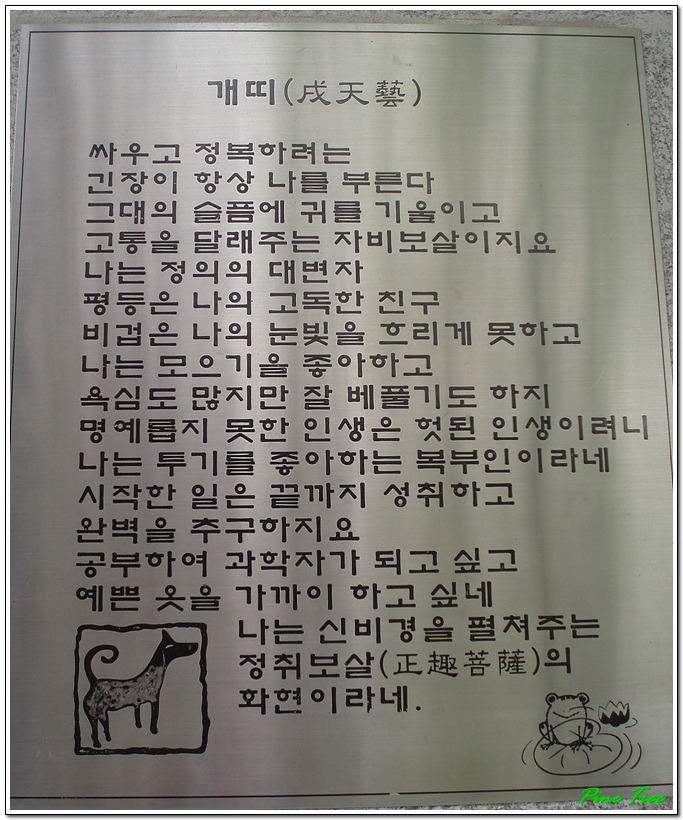 개띠(戌天藝)
싸우고 정복하려는
긴장이 항상 나를 부른다
그대의 슬픔에 귀를 기울이고
고통을 달래주는 자비보살이지요
나는 정의의 대변자
평등은 나의 고독한 친구
비겁은 나의 눈빛을 흐리게 못하고
나는 모으기을 좋아하고
욕심도 많지만 잘 베풀기도 하지
명예롭지 못한 인생은 헛된 인생이려니
나는 투기를 좋아하는 복부인이라네
시작한 일은 끝까지 성취하고
완벽을 추구하지요
공부하여 과학자가 되고 싶고
예쁜 옷을 가까이 하고 싶네
나는 신비경을 펼쳐주는
정취보살(正趣菩薩)의
화현이라네.
Pine Tree